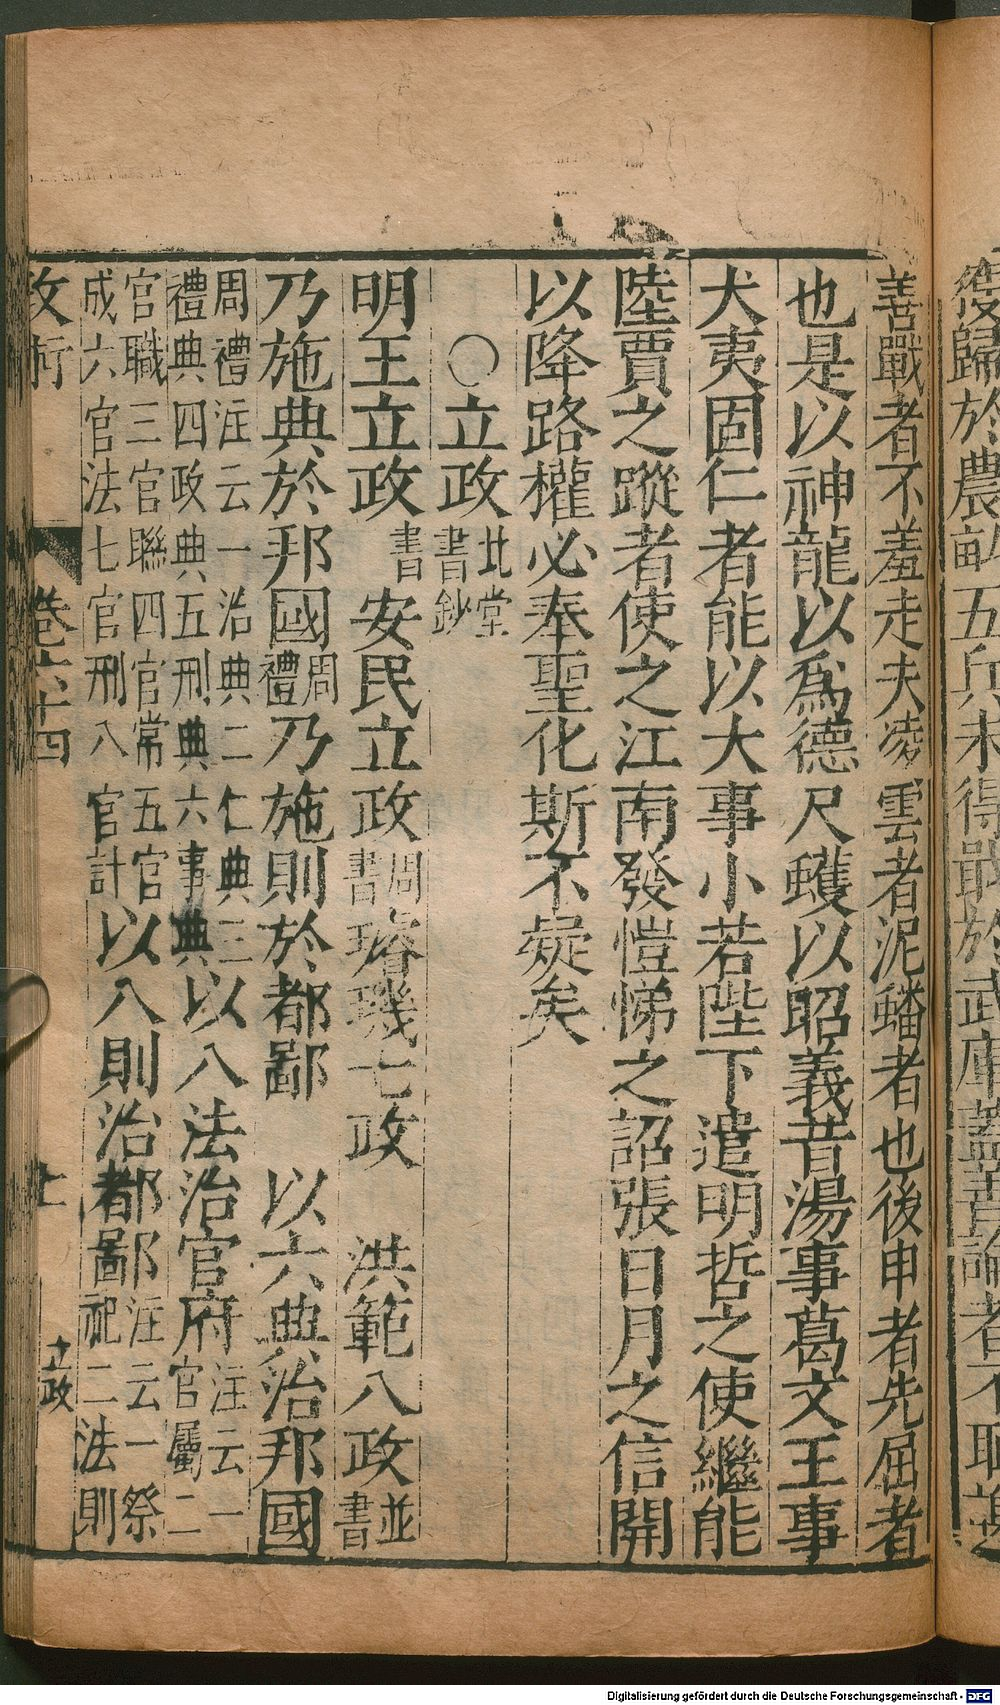 復歸於農畝五兵未得戢於武庫蓋
善戰者不羞走夫凌雲者泥蟠者也後申者先屈者
也是以神龍以為德尺蠖以昭義昔湯事葛文王事
犬夷固仁者能以大事小若陛下遣明哲之使繼能
陸賈之蹤者使之江南發愷悌之詔張日月之信開
以降路權必奉聖化斯不疑矣
○立政北堂書鈔
明王立政書 安民立政周書 璿璣七政 洪範八政並書
乃施典於邦國周禮 乃施則於都鄙 以六典治邦國
周禮注云一治典二仁典三禮典四政典五刑典六事典 以八法治官府注云一官屬二
官職三官聯四官常五官成六官法七官刑八官計 以八則治都鄙注云一祭祀二法則
政術 卷六十四 十一 立政
Digitalisierung gefördert durch die Deutsche Forschungsgemeinschaft - DFG